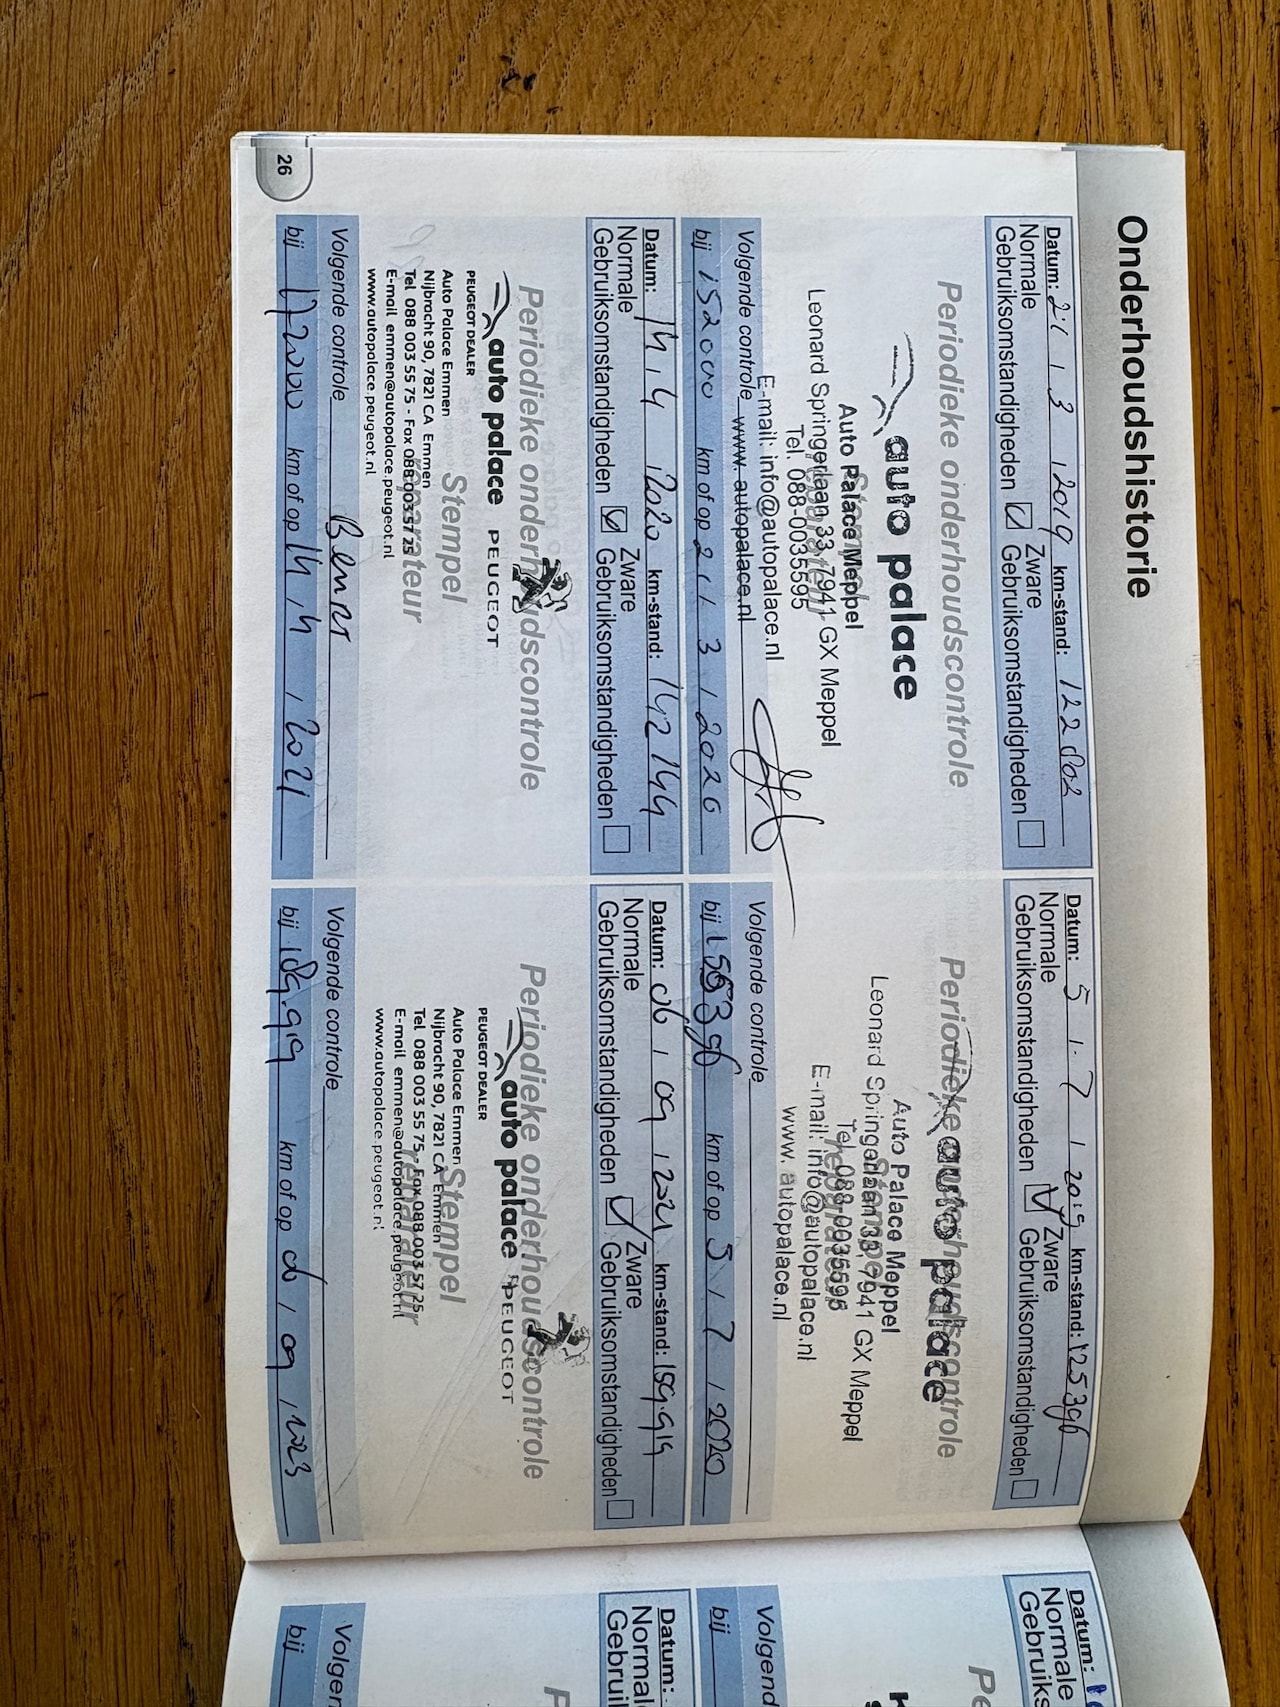 Onderhoudshistorie
Datum: 21 / 3 / 2019 km-stand: 122802
Normale Gebruiksomstandigheden
Zware Gebruiksomstandigheden
Periodieke onderhoudscontrole
auto palace
Stempel
reparateur
Auto Palace Meppel
Leonard Springerlaan 33, 7941 GX Meppel
Tel. 088-0035595
E-mail: info@autopalace.nl
www. autopalace.nl
Volgende controle
bij 152000 km of op 21 / 3 / 2020
Datum: 5 / 7 / 2019 km-stand: 125396
Normale Gebruiksomstandigheden
Zware Gebruiksomstandigheden
Periodieke onderhoudscontrole
auto palace
Stempel
reparateur
Auto Palace Meppel
Leonard Springerlaan 33, 7941 GX Meppel
Tel. 088-0035595
E-mail: info@autopalace.nl
www. autopalace.nl
Volgende controle
bij 155396 km of op 5 / 7 / 2020
Datum: 14 / 4 / 2020 km-stand: 142744
Normale Gebruiksomstandigheden
Zware Gebruiksomstandigheden
Periodieke onderhoudscontrole
auto palace PEUGEOT
PEUGEOT DEALER
Stempel
reparateur
Auto Palace Emmen
Nijbracht 90, 7821 CA Emmen
Tel 088 003 55 75 - Fax 088 003 57 25
E-mail emmen@autopalace.peugeot.nl
www.autopalace.peugeot.nl
Volgende controle
bij 172000 km of op 14 / 4 / 2021
Datum: 06 / 09 / 2021 km-stand: 159.919
Normale Gebruiksomstandigheden
Zware Gebruiksomstandigheden
Periodieke onderhoudscontrole
auto palace PEUGEOT
PEUGEOT DEALER
Stempel
reparateur
Auto Palace Emmen
Nijbracht 90, 7821 CA Emmen
Tel 088 003 55 75 - Fax 088 003 57 25
E-mail emmen@autopalace.peugeot.nl
www.autopalace.peugeot.nl
Volgende controle
bij 189.919 km of op 06 / 09 / 2023
26
Datum:
Normale
Gebruiks
Volgend
bij
Datum:
Normal
Gebruil
Volgen
bij